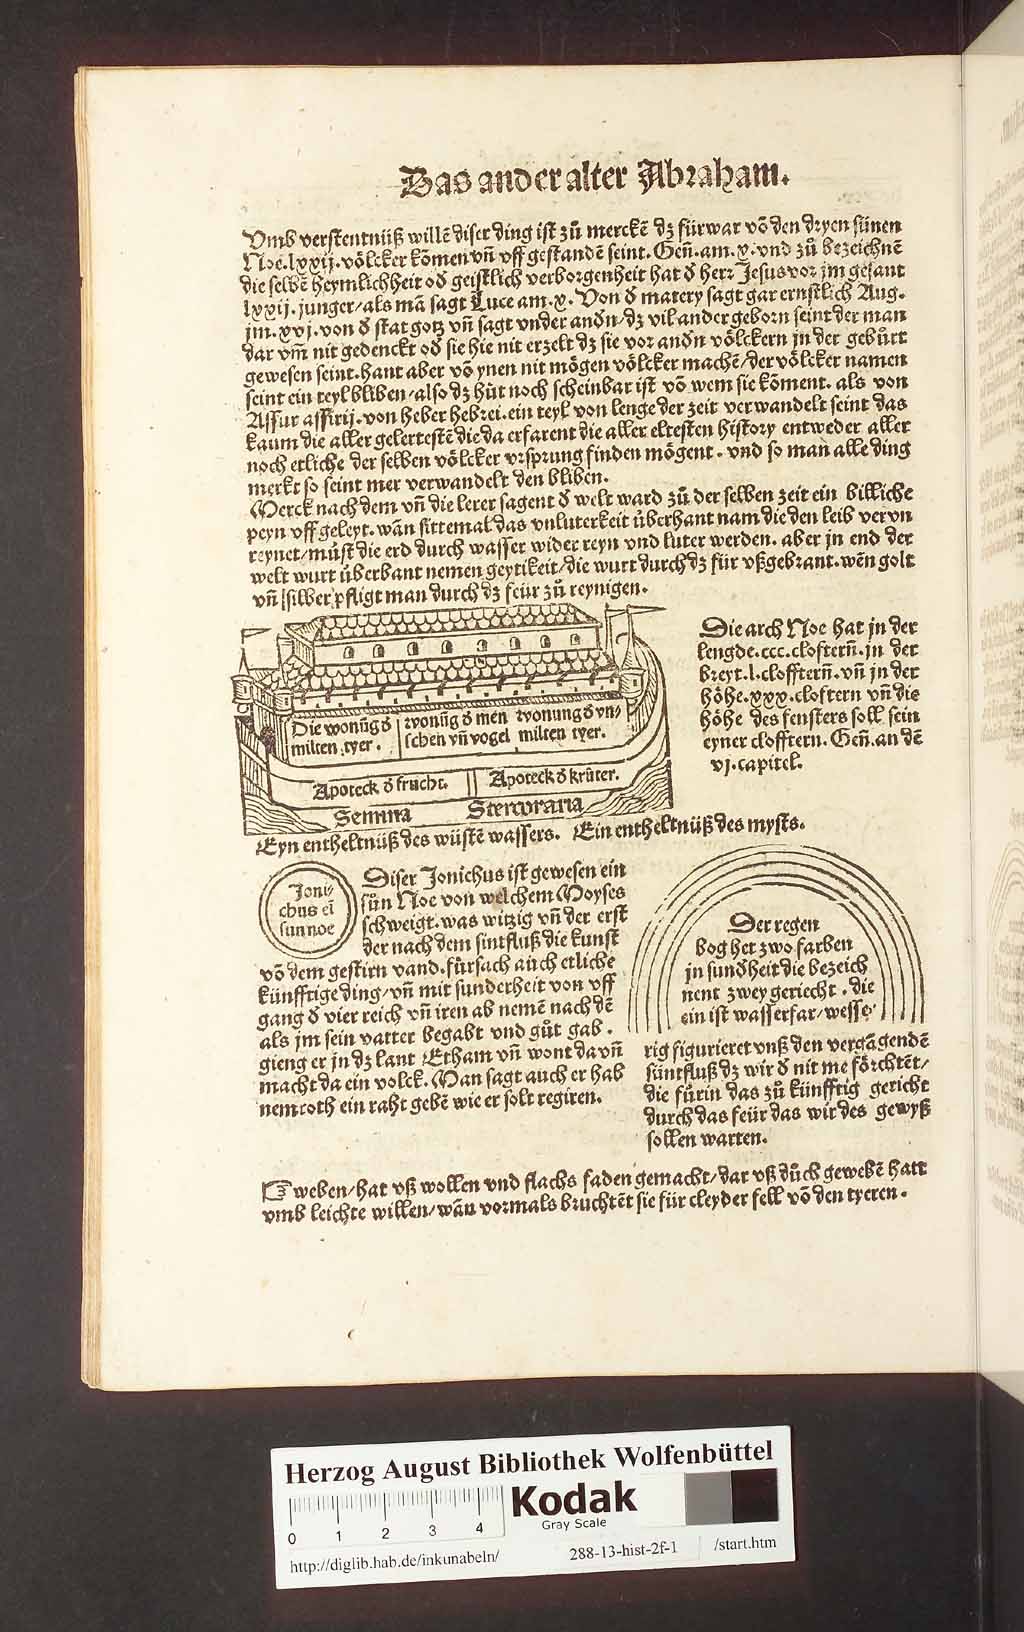 Das ander alter Abraham.
Umb verstentnüß willē diser ding ist zů merckē dz fürwar võ den dryen sünen
Noe.lxxij.völcker kõmen vñ vff gestandē seint.Geñ.am.x.vnd zů bezeichnē
die selbē heymlichheit od geistlich verborgenheit hat d herr Jesus vor jm gesant
lxxij.junger/als mã sagt Luce am.x.Von d matery sagt gar ernstlich Aug.
jm.xvj.von d stat gotz vñ sagt vnder andn/dz vil ander geborn seint der man
dar vm̃ nit gedenckt od sie hie nit erzelt dz sie vor andn völckern jn der gebůrt
gewesen seint.hant aber võ ynen nit mögen völcker machē/der völcker namen
seint ein teyl bliben/also dz hüt noch scheinbar ist võ wem sie kõment.als von
Assur assirij.von heber hebrei.ein teyl von lenge der zeit verwandelt seint das
kaum die aller gelertestē die da erfarent die aller eltesten history entweder aller
noch etliche der selben völcker vrsprung finden mögent.vnd so man alle ding
merkt so seint mer verwandelt den bliben.
Merck nach dem vñ die lerer sagent d welt ward zů der selben zeit ein billiche
peyn vff geleyt.wãn sittemal das vnluterkeit überhant nam die den leib vervn
reynet/můst die erd durch wasser wider reyn vnd luter werden.aber jn end der
welt wurt überbant nemen geytikeit/die wurt durch dz für vßgebrant.wēn golt
vñ silber pfligt man durch dz feür zů reynigen.
Die wonũg d
milten.tyer.
wonũg d men
schen vñ vogel
wonung d vn/
milten tyer.
Apoteck d frucht.
Apoteck d krüter.
Semina
Stercoraria
Die arch Noe hat jn der
lengde.ccc.cloftern̄.jn der
breyt.l.clofftern̄.vñ jn der
höhe.xxx.cloftern vñ die
höhe des fensters soll sein
eyner clofftern.Geñ.an dē
vj.capitel.
Eyn entheltnüß des wüstē wassers. Ein entheltnüß des mysts.
Joni/
chus eĩ
sun noe
Diser Jonichus ist gewesen ein
sůn Noe von welchem Moyses
schweigt.was witzig vñ der erst
der nach dem sintfluß die kunst
võ dem gestirn vand.fürsach auch etliche
künfftige ding/vñ mit sunderheit von vff
gang d vier reich vñ iren ab nemē nach dē
als jm sein vatter begabt vnd gůt gab.
gieng er jn dz lant Etham vñ wont da vñ
macht da ein volck.Man sagt auch er hab
nemroth ein raht gebē wie er solt regiren.
Der regen
bog het zwo farben
jn sundheit die bezeich
nent zwey geriecht.die
ein ist wasserfar/wesse
rig figurieret vnß den vergãgendē
süntfluß dz wir d nit me förchtēt/
die fürin das zů künfftig gericht
durch das feür das wir des gewyß
sollen warten.
☞ weben/hat vß wollen vnd flachs faden gemacht/dar vß důch gewebē hatt
vmb leichte willen/wãn vormals bruchtēt sie für cleyder fell võ den tyeren.
Herzog August Bibliothek Wolfenbüttel
Kodak
Gray Scale
0 1 2 3 4
http://diglib.hab.de/inkunabeln/ 288-13-hist-2f-1 /start.htm